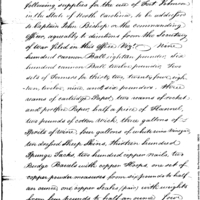 following supplies for the use of Fort Johnson
in the State of North Carolina, to be addressed
to Captain John Bishop or the commanding
officer, agreeably to directions from the Secretary
of War filed in this Office No.
hundred cannon Ball eighteen pounder, six
hundred cannon Ball twelve pounder, two
sets of Sponges for thirty two twenty four, eigh-
teen, twelve, nine and six pounders three
reams of cartridge Paper, two reams of cannon
and portfire Paper half a piece of Flannel,
two pounds of cotton Wick, three gallons of
Spirits of wine, four gallons of
ten dressed Sheep Skins, thirteen hundred
Sponge Tacks, two hundred copper nails, two
Budge Barrels with copper Hoops, one set of
copper powder measures from six pounds to half
an ounce, one copper scales (pair) with weights
from four pounds to half an ounce four